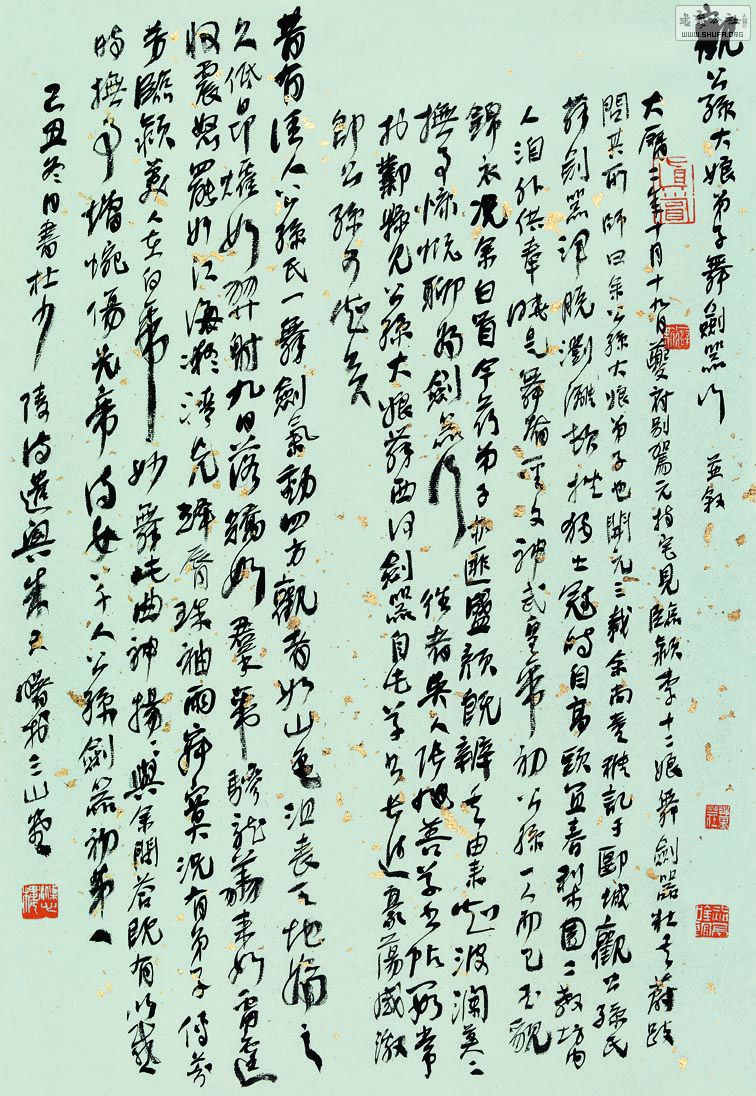 觀公孫大娘弟子舞劍器行 並敘
大曆二年十月十九日夔府別駕元持宅見臨潁李十二娘舞劍器壯其蔚跂
問其所師曰余公孫大娘弟子也開元三載余尚童稚記于郾城觀公孫氏
舞劍器渾脫瀏灕頓挫獨出冠時自高頭宜春梨園二教坊內
人洎外供奉曉是舞者聖文神武皇帝初公孫一人而已玉貌
錦衣況余白首今茲弟子亦匪盛顏既辨其由來知波瀾莫二
撫事慷慨聊為劍器行 往者吳人張旭善草書帖數常
於鄴縣見公孫大娘舞西河劍器自此草書長進豪蕩感激
即公孫可知矣
昔有佳人公孫氏一舞劍氣動四方觀者如山色沮喪天地為之
久低昂㸌如羿射九日落矯如群帝驂龍翔來如雷霆
收震怒罷如江海凝清光絳脣珠袖兩寂寞況有弟子傳芬
芳臨潁美人在白帝妙舞此曲神揚揚與余問答既有以感
時撫事增惋傷先帝侍女八千人公孫劍器初第一
己丑冬日書杜少陵詩遣興
WWW.SHUFA.ORG